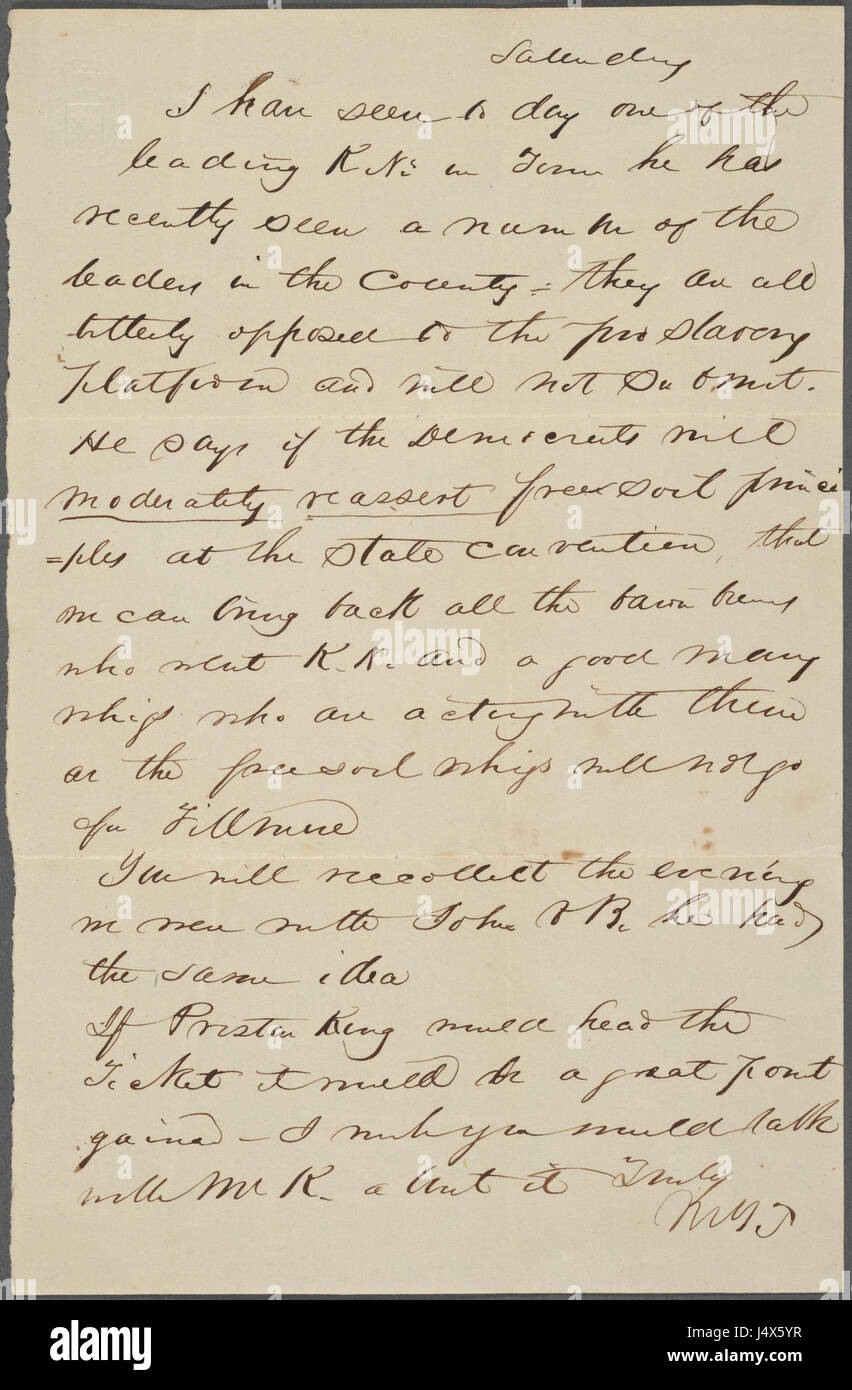 Saturday
I have seen to day one of the
leading K Ns in Town he has
recently seen a number of the
leaders in the County = they are all
bitterly opposed to the pro slavery
Platform and will not submit.
He says if the Democrats will
moderately reassert free soil princi
=ples at the state convention, that
we can bring back all the barn burners
who went K. N. and a good many
whigs who are acting with them
as the free soil whigs will not go
for Fillmore
You will recollect the evening
we were with John V B, he had
the same idea
If Preston King would head the
Ticket it would be a great point
gained – I wish you would talk
with Mr K. about it Truly
alamy
Image ID: J4X5YR
www.alamy.com